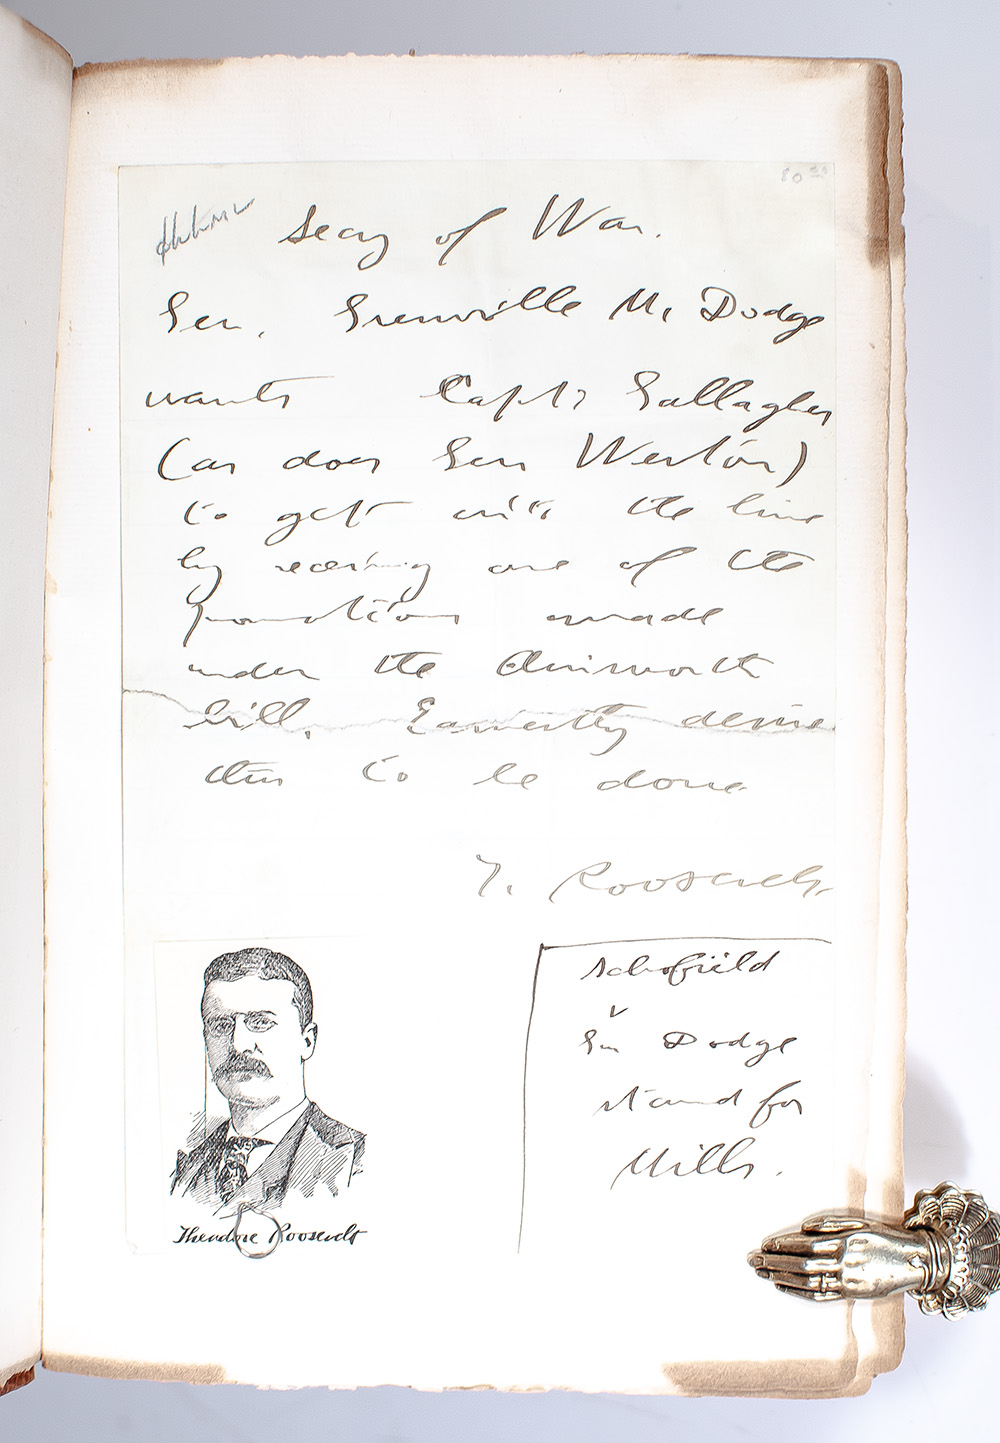 Secy of War.
Gen. Grenville M. Dodge
wants Capt. Gallagher
(as does Gen Weston)
to get into the line
by receiving one of the
promotions made
under the Ainsworth
bill. Earnestly desire
this to be done
T. Roosevelt.
Schofield
v
Gen Dodge
stand for
Mills.
Theodore Roosevelt